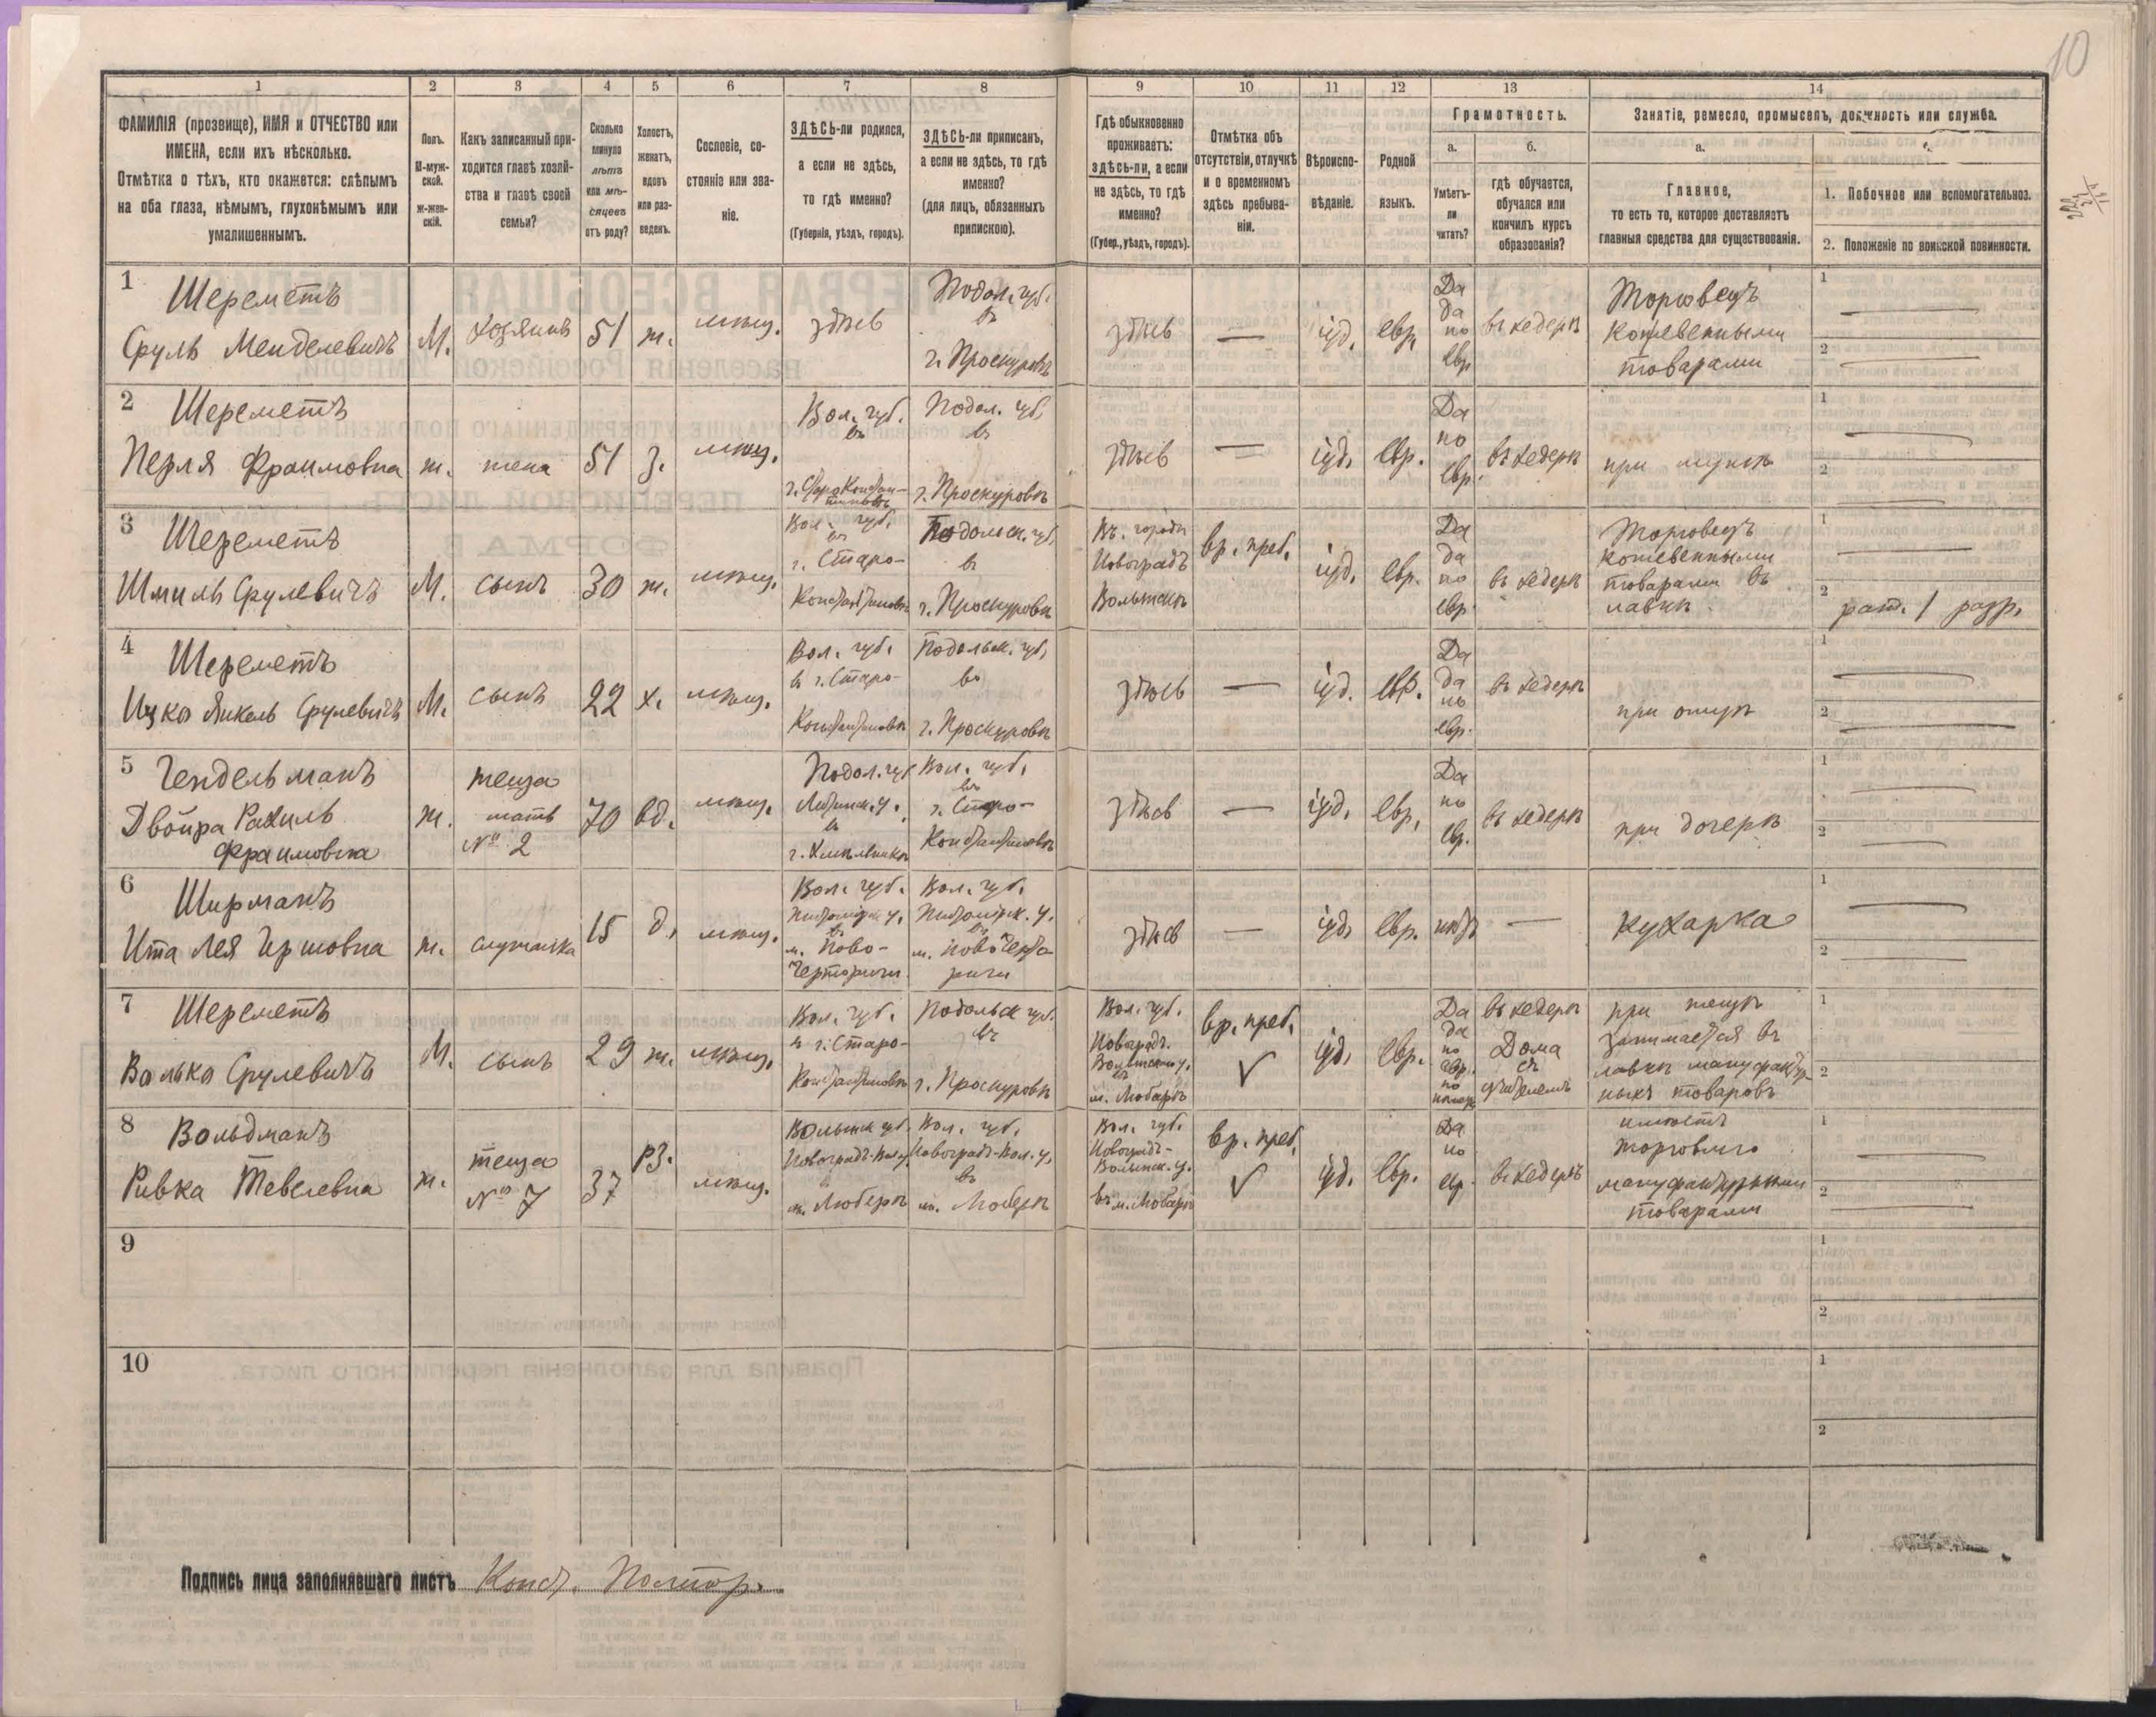 10
1 2 3 4 5 6 7 8 9 10 11 12 13 14
ФАМИЛІЯ (прозвище), ИМЯ и ОТЧЕСТВО или
ИМЕНА, если ихъ нѣсколько.
Отмѣтка о тѣхъ, кто окажется: слѣпымъ
на оба глаза, нѣмымъ, глухонѣмымъ или
умалишеннымъ.
Полъ.
М-муж-
ской.
Ж-жен-
скій.
Какъ записанный при-
ходится главѣ хозяй-
ства и главѣ своей
семьи?
Сколько
минуло
лѣтъ
или мѣ-
сяцевъ
отъ роду?
Холостъ,
женатъ,
вдовъ
или раз-
веденъ.
Сословіе, со-
стояніе или зва-
ніе.
ЗДѢСЬ-ли родился,
а если не здѣсь,
то гдѣ именно?
(Губернія, уѣздъ, городъ).
ЗДѢСЬ-ли приписанъ,
а если не здѣсь, то гдѣ
именно?
(для лицъ, обязанныхъ
припискою).
Гдѣ обыкновенно
проживаетъ:
здѣсь-ли, а если
не здѣсь, то гдѣ
именно?
(Губер., уѣздъ, городъ).
Отмѣтка объ
отсутствіи, отлучкѣ
и о временномъ
здѣсь пребыва-
ніи.
Вѣроиспо-
вѣданіе.
Родной
языкъ.
Грамотность.
а.
Умѣетъ-
ли
читать?
б.
гдѣ обучается,
обучался или
кончилъ курсъ
образованія?
Занятіе, ремесло, промыселъ, должность или служба.
а.
Главное,
то есть то, которое доставляетъ
главныя средства для существованія.
1. Побочное или вспомогательное.
2. Положеніе по воинской повинности.
1
Шереметъ
Сруль Менделевичъ
М.
хозяинъ
51
ж.
мѣщ.
здѣсь
Подол. губ.
въ
г. Проскуровѣ
здѣсь
—
іуд.
евр.
Да
да
по
евр
въ хедерѣ
Торговецъ
кожевенными
товарами
1
2
2
Шереметъ
Перля Фраимовна
ж.
жена
51
з.
мѣщ.
Вол. губ.
въ
г. СтароКонстан-
тиновѣ
Подол. губ.
въ
г. Проскуровѣ
здѣсь
—
іуд.
евр.
Да
по
евр.
въ хедерѣ
при мужѣ
1
2
3
Шереметъ
Шмиль Срулевичъ
М.
сынъ
30
ж.
мѣщ.
Вол. губ.
въ
г. Старо-
Константиновѣ
Подольск. губ.
въ
г. Проскуровѣ
Въ городѣ
Новоградъ
Волынскѣ
вр. преб.
іуд.
евр.
Да
да
по
евр.
въ хедерѣ
Торговецъ
кожевенными
товарами въ
лавкѣ
1
2
рат. 1 разр.
4
Шереметъ
Ицко Янкель Срулевичъ
М.
сынъ
22
х.
мѣщ.
Вол. губ.
въ г. Старо-
Константиновѣ
Подольск. губ.
въ
г. Проскуровѣ
здѣсь
—
іуд.
евр.
Да
да
по
евр.
въ хедерѣ
при отцѣ
1
2
5
Гендельманъ
Двойра Рахиль
Фраимовна
ж.
теща
мать
№ 2
70
вд.
мѣщ.
Подол. губ.
въ
г. Хмѣльникѣ
Вол. губ.
въ
г. Старо-
Константиновѣ
здѣсь
—
іуд.
евр.
Да
по
евр.
въ хедерѣ
при дочерѣ
1
2
6
Ширманъ
Ита Лея Гершовна
ж.
служанка
15
д.
мѣщ.
Вол. губ.
Житомірск. у.
въ
м. Ново-
Чарторыи
Вол. губ.
Житомірск. у.
въ
здѣсь
—
іуд.
евр.
нѣтъ
—
кухарка
1
2
7
Шереметъ
Волько Срулевичъ
М.
сынъ
29
ж.
мѣщ.
Вол. губ.
въ г. Старо-
Константиновѣ
Подольск губ.
въ
г. Проскуровѣ
Вол. губ.
Новградъ
Волынскомъ у.
въ
м. Любарѣ
вр. преб.
✓
іуд.
евр.
Да
да
по
евр.
по
въ хедерѣ
Дома
съ
учителемъ
при тещѣ
занимается въ
лавкѣ мануфактур-
ныхъ товаровъ
1
2
8
Вольдманъ
Ривка Тевелевна
ж.
теща
№ 7
37
рз.
мѣщ.
Волынск губ.
Новоградъ-Вол. у.
м. Любарѣ
Вол. губ.
Новоградъ-Вол. у.
въ
м. Любарѣ
Вол. губ.
Новоградъ-
Волынск. у.
въ м. Любарѣ
вр. преб.
✓
іуд.
евр.
Да
по
евр.
въ хедерѣ
имѣетъ
торговлю
мануфактурными
товарами
1
2
9
1
2
10
1
2
Подпись лица заполнявшаго листъ Конст.